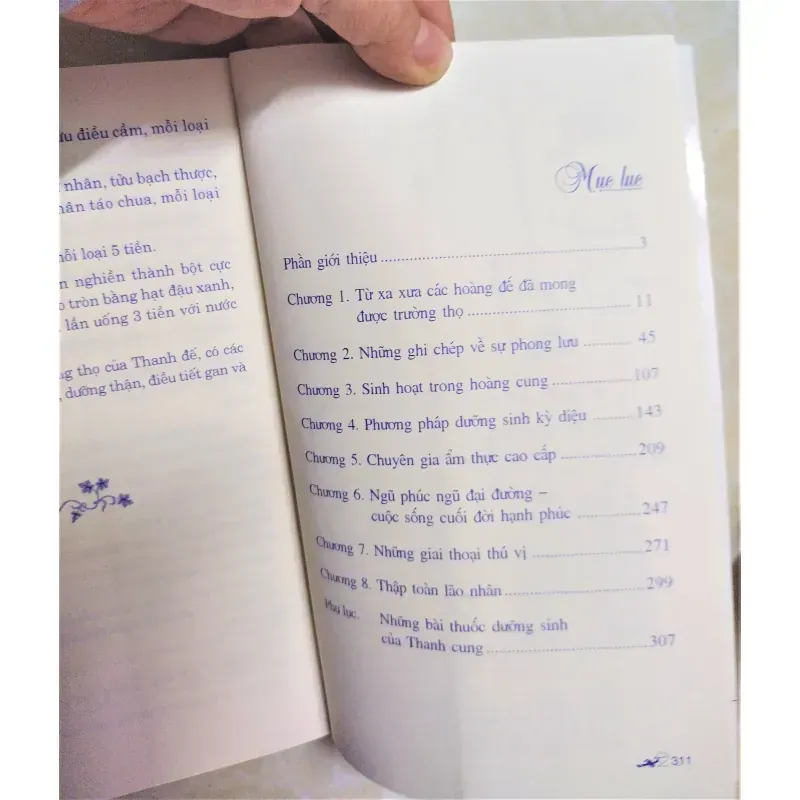 điều cầm, mỗi loại
nhân, tửu bạch thược,
nhân táo chua, mỗi loại
mỗi loại 5 tiền.
nghiền thành bột cực
tròn bằng hạt đậu xanh,
lần uống 3 tiền với nước
thọ của Thanh đế, có các
, dưỡng thận, điều tiết gan và
Mục lục
Phần giới thiệu ........ 3
Chương 1. Từ xa xưa các hoàng đế đã mong
được trường thọ ........ 11
Chương 2. Những ghi chép về sự phong lưu ........ 45
Chương 3. Sinh hoạt trong hoàng cung ........ 107
Chương 4. Phương pháp dưỡng sinh kỳ diệu ........ 143
Chương 5. Chuyên gia ẩm thực cao cấp ........ 209
Chương 6. Ngũ phúc ngũ đại đường –
cuộc sống cuối đời hạnh phúc ........ 247
Chương 7. Những giai thoại thú vị ........ 271
Chương 8. Thập toàn lão nhân ........ 299
Phụ lục. Những bài thuốc dưỡng sinh
của Thanh cung ........ 307
311